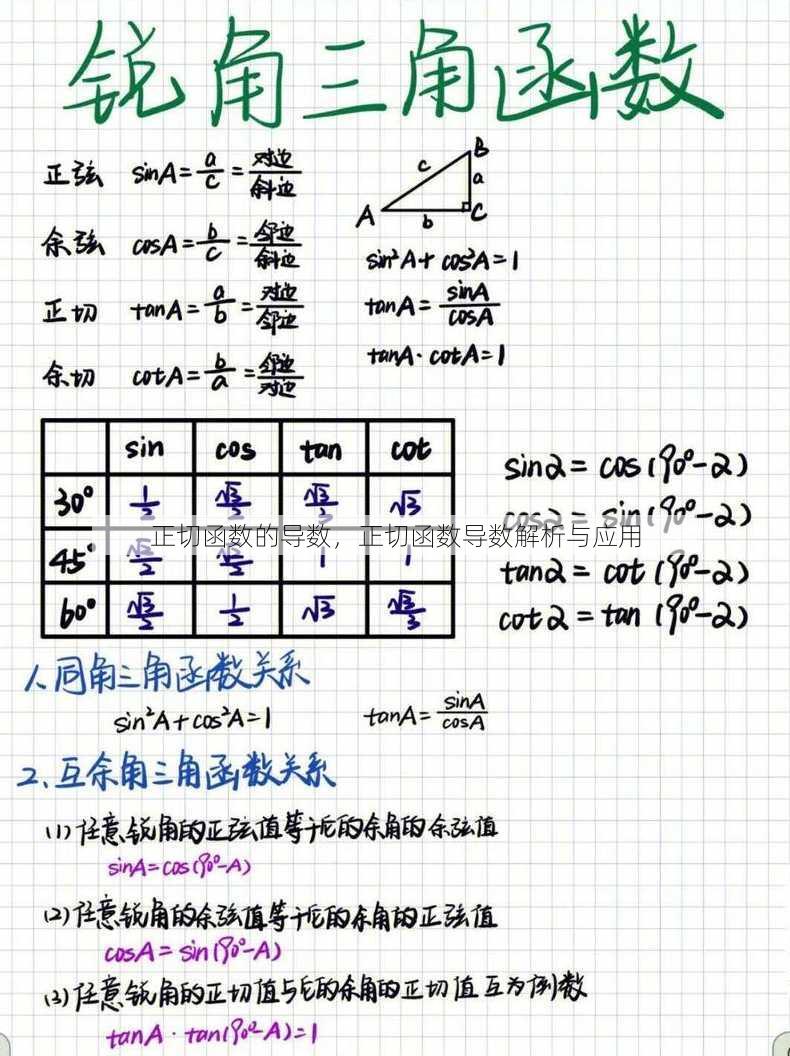 锐角三角函数
正弦 sinA=a/c=对边/斜边
余弦 cosA=b/c=邻边/斜边
正切 tanA=a/b=对边/邻边
余切 cotA=b/a=邻边/对边
A B C a b c
sin²A+cos²A=1
tanA=sinA/cosA
tanA·cotA=1
sin cos tan cot
30° 1/2 √3/2 √3/3 √3
45° √2/2 √2/2 1 1
60° √3/2 1/2 √3 √3/3
sinα=cos(90°-α)
cosα=sin(90°-α)
tanα=cot(90°-α)
cotα=tan(90°-α)
正切函数的导数，正切函数导数解析与应用
1、同角三角函数关系
sin²A+cos²A=1 tanA=sinA/cosA
2、互余角三角函数关系
(1)任意锐角的正弦值等于它的余角的余弦值
sinA=cos(90°-A)
(2)任意锐角的余弦值等于它的余角的正弦值
cosA=sin(90°-A)
(3)任意锐角的正切值与它的余角的正切值互为倒数
tanA·tan(90°-A)=1